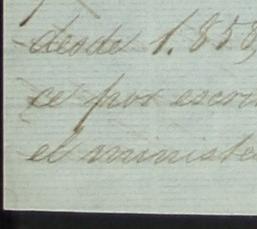 desde 1.858,
ce por escri
el ministe